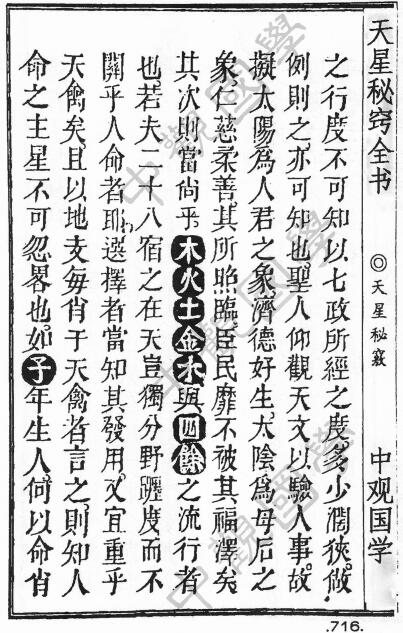 天星秘窍全书
◎天星秘竅
中观国学
之行度不可知以七政所經之度多少濶狹倣
例則之亦可知也聖人仰觀天文以驗人事故
擬太陽為人君之象濟德好生太陰為母后之
象仁慈柔善其所照臨臣民靡不被其福澤矣
其次則當尚乎木火土金水與四餘之流行者
也若夫二十八宿之在天豈獨分野躔度而不
關乎人命者耶選擇者當知其發用又宜重乎
天禽矣且以地支每肖于天禽者言之則知人
命之主星不可忽畧也如子年生人何以命肖
.716.
中觀國學
中觀國學
中觀國學